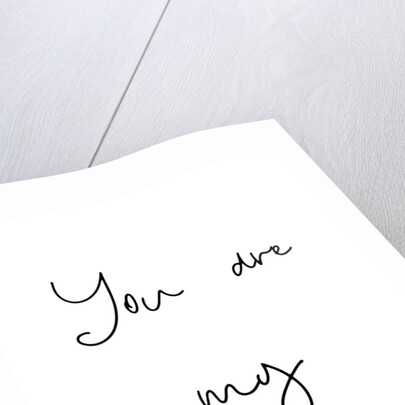 You are
my